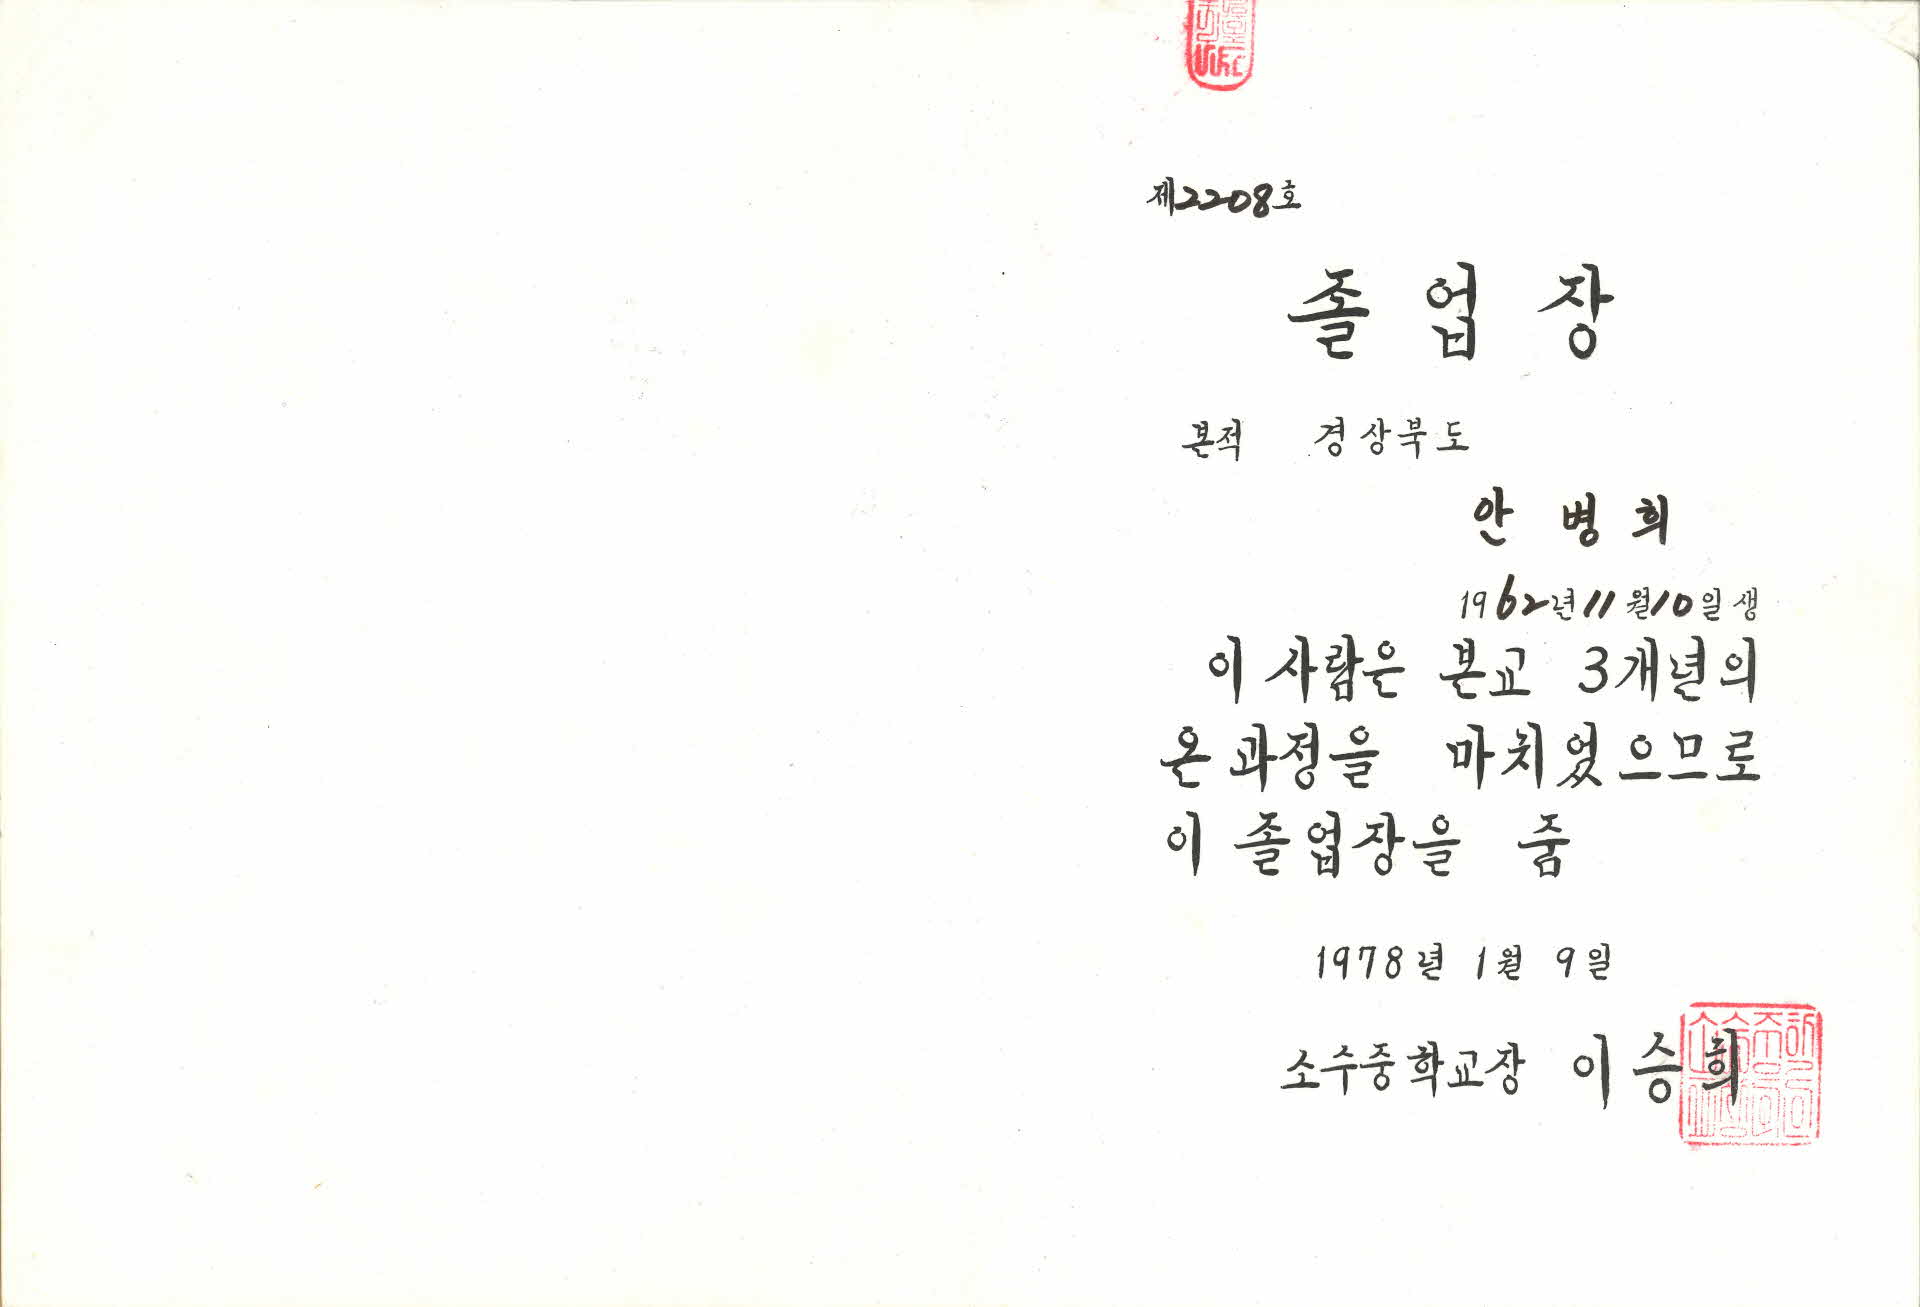 제2208호
졸업장
본적 경상북도
안병희
1962년 11월 10일생
이 사람은 본교 3개년의
온 과정을 마치었으므로
이 졸업장을 줌
1978년 1월 9일
소수중학교장 이승희